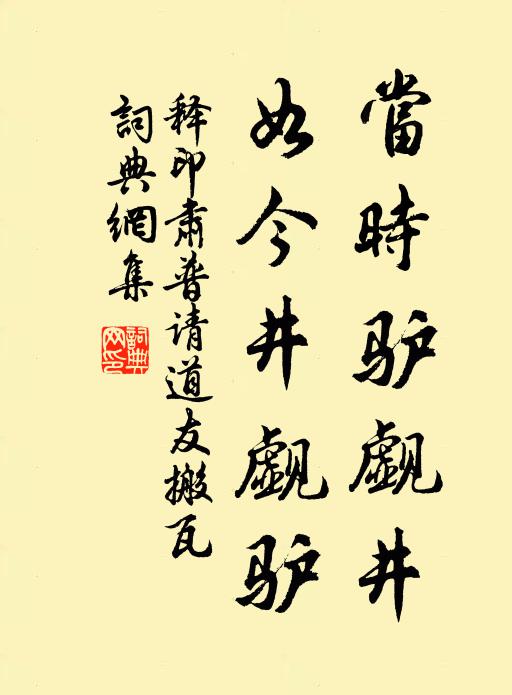 當時驴覷井
如今井覷驴
释印肃普请道友搬瓦
詞典網集
詞典網印